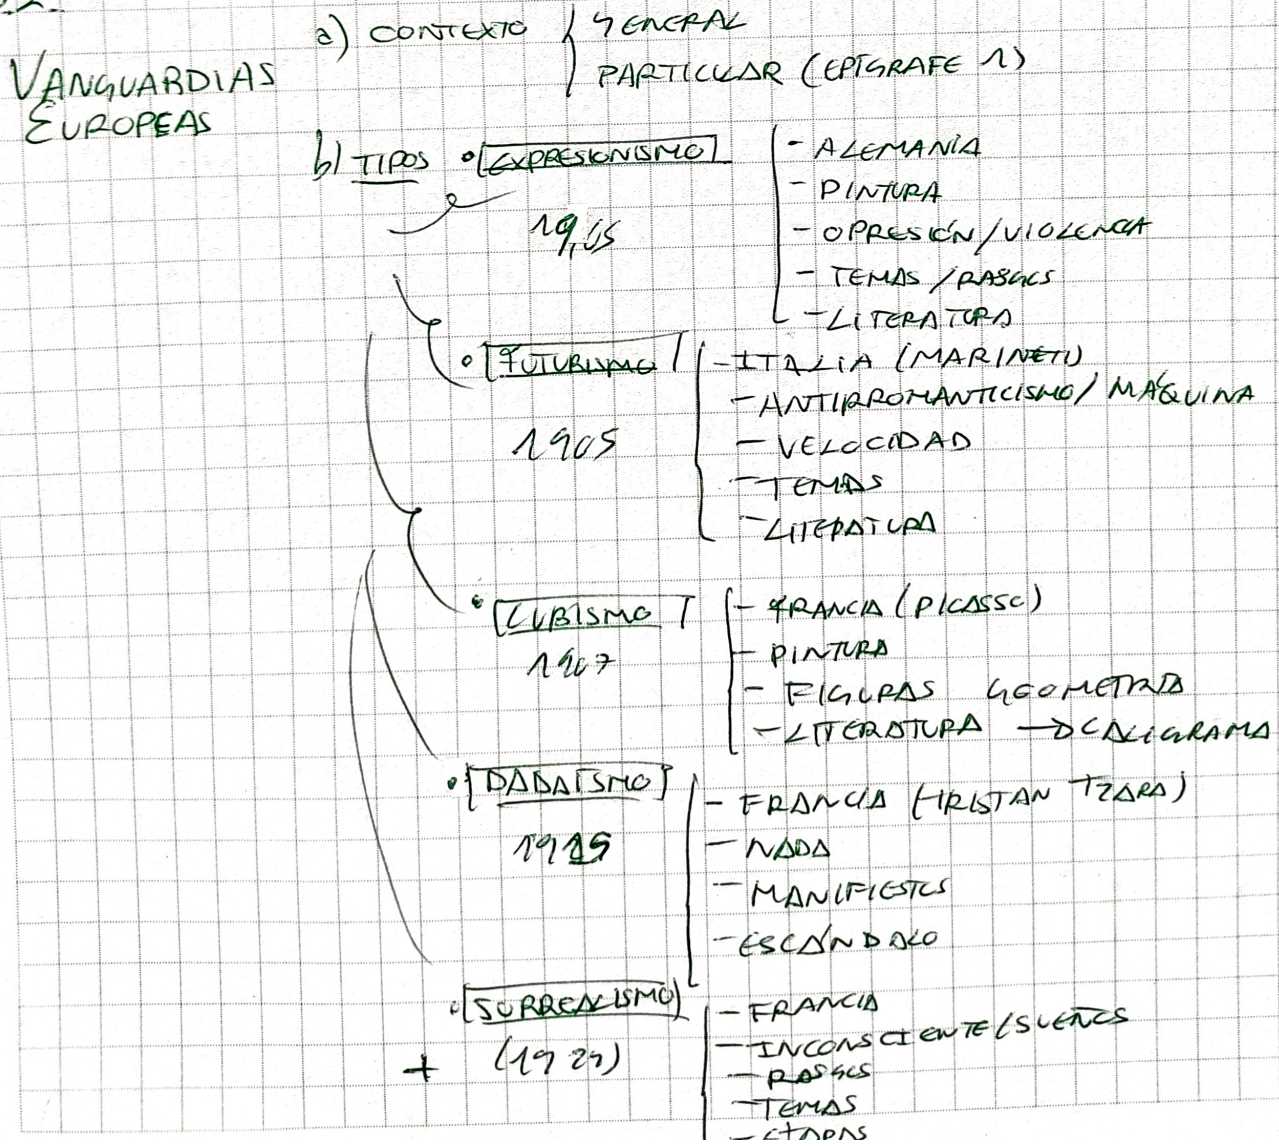 VANGUARDIAS
EUROPEAS
a) CONTEXTO
GENERAL
PARTICULAR (EPÍGRAFE 1)
b) TIPOS
• EXPRESIONISMO
19,05
- ALEMANIA
- PINTURA
- OPRESIÓN/VIOLENCIA
- TEMAS/RASGOS
- LITERATURA
• FUTURISMO
1905
- ITALIA (MARINETI)
- ANTIRROMANTICISMO/MÁQUINA
- VELOCIDAD
- TEMAS
- LITERATURA
• CUBISMO
1907
- FRANCIA (PICASSO)
- PINTURA
- FIGURAS GEOMETRÍA
- LITERATURA → CALIGRAMA
• DADAÍSMO
1915
- FRANCIA (TRISTAN TZARA)
- NADA
- MANIFIESTOS
- ESCÁNDALO
• SURREALISMO
+ (1924)
- FRANCIA
- INCONSCIENTE/SUEÑOS
- RASGOS
- TEMAS
- ETAPAS